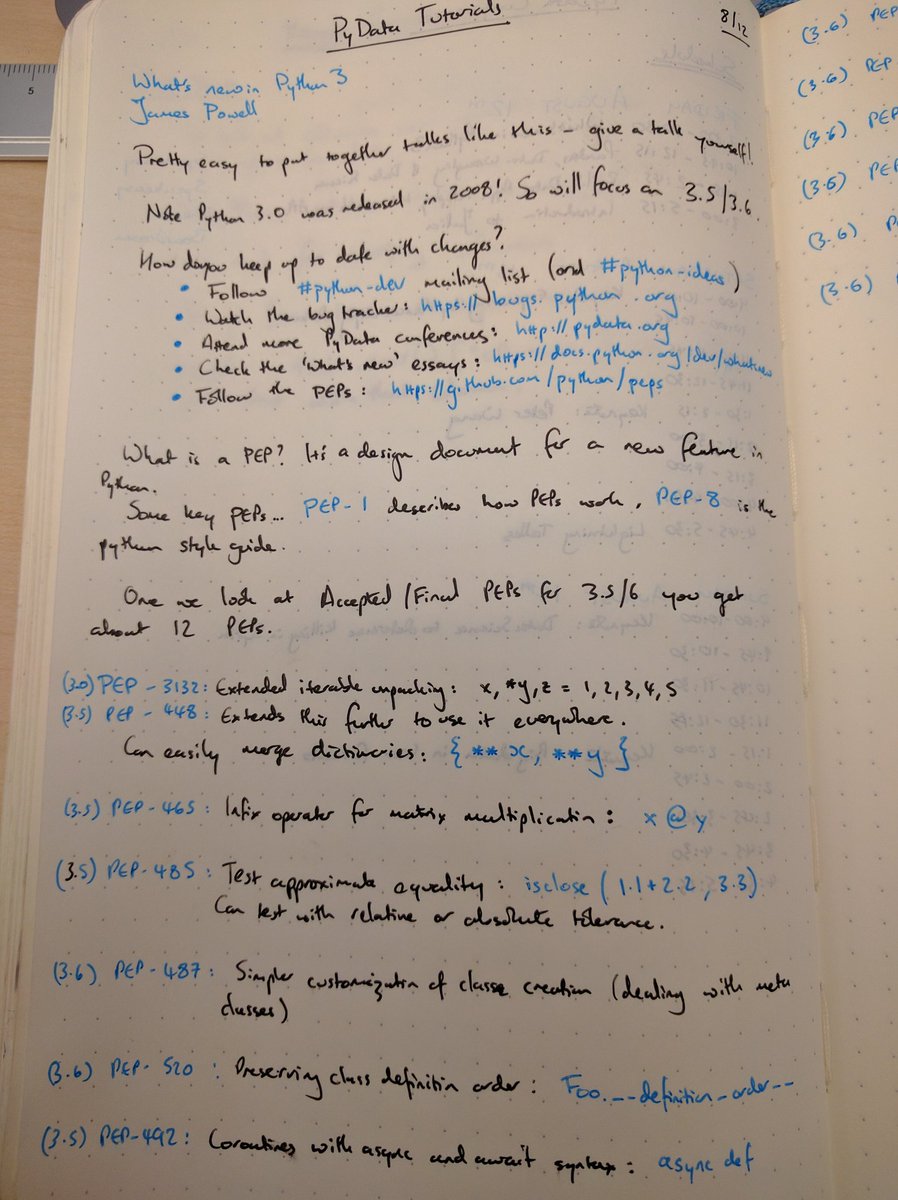 PyData Tutorials
8/12
What's new in Python 3
James Powell
Pretty easy to put together talks like this - give a talk yourself!
Note Python 3.0 was released in 2008! So will focus on 3.5/3.6.
How do you keep up to date with changes?
• Follow #python-dev mailing list (and #python-ideas)
• Watch the bug tracker: https://bugs.python.org
• Attend more PyData conferences: http://pydata.org
• Check the 'what's new' essays: https://docs.python.org/dev/whatsnew
• Follow the PEPs: https://github.com/python/peps
What is a PEP? It's a design document for a new feature in
Python.
Some key PEPs... PEP-1 describes how PEPs work, PEP-8 is the
python style guide.
One we look at Accepted/Final PEPs for 3.5/6 you get
about 12 PEPs.
(3.0) PEP-3132: Extended iterable unpacking: x, *y, z = 1, 2, 3, 4, 5
(3.5) PEP-448: Extends this further to use it everywhere.
Can easily merge dictionaries: {**x, **y}
(3.5) PEP-465: Infix operator for matrix multiplication: x @ y
(3.5) PEP-485: Test approximate equality: isclose(1.1+2.2, 3.3)
Can test with relative or absolute tolerance.
(3.6) PEP-487: Simpler customization of classe creation (dealing with meta
classes)
(3.6) PEP-520: Preserving class definition order: Foo.__definition_order__
(3.5) PEP-492: Coroutines with async and await syntax: async def
(3.6) PEP
(3.6) PEP
(3.6) PEP
(3.6)
(3.6)
5